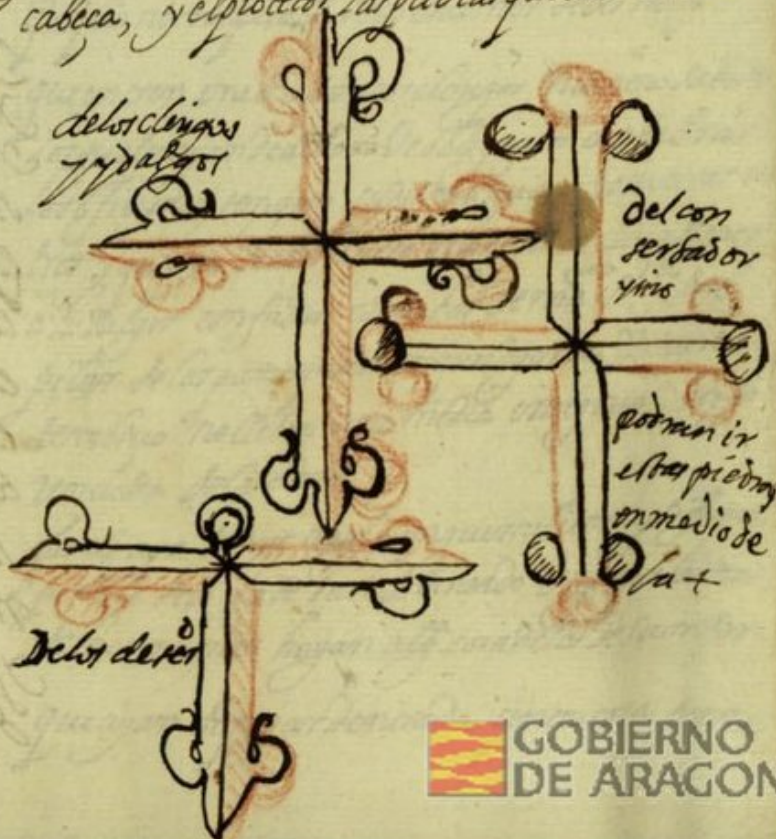 cabeça, y el
de los clerigos
y ydalgos
del con
serbador
y mio
podran ir
estas piedras
en medio de
la +
De los de ser
GOBIERNO
DE ARAGON